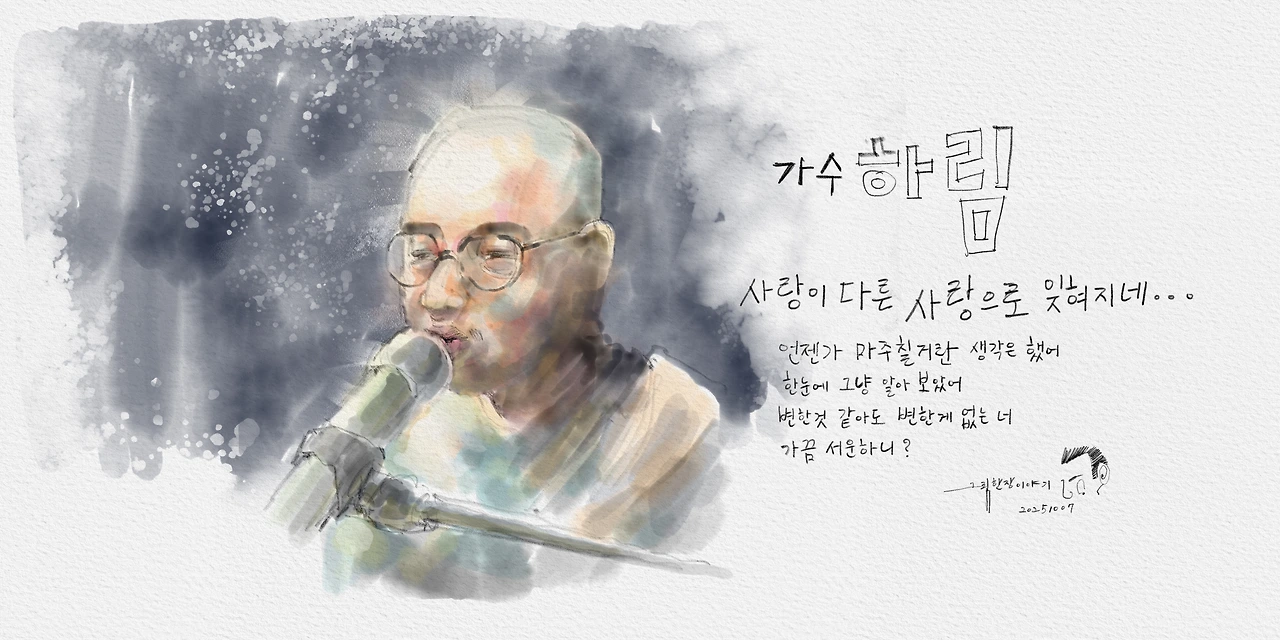 가수 하림
사랑이 다른 사랑으로 잊혀지네...
언젠가 마주칠거란 생각은 했어
한눈에 그냥 알아 보았어
변한것 같아도 변한게 없는 너
가끔 서운하니?
그림한장이야기
20251007